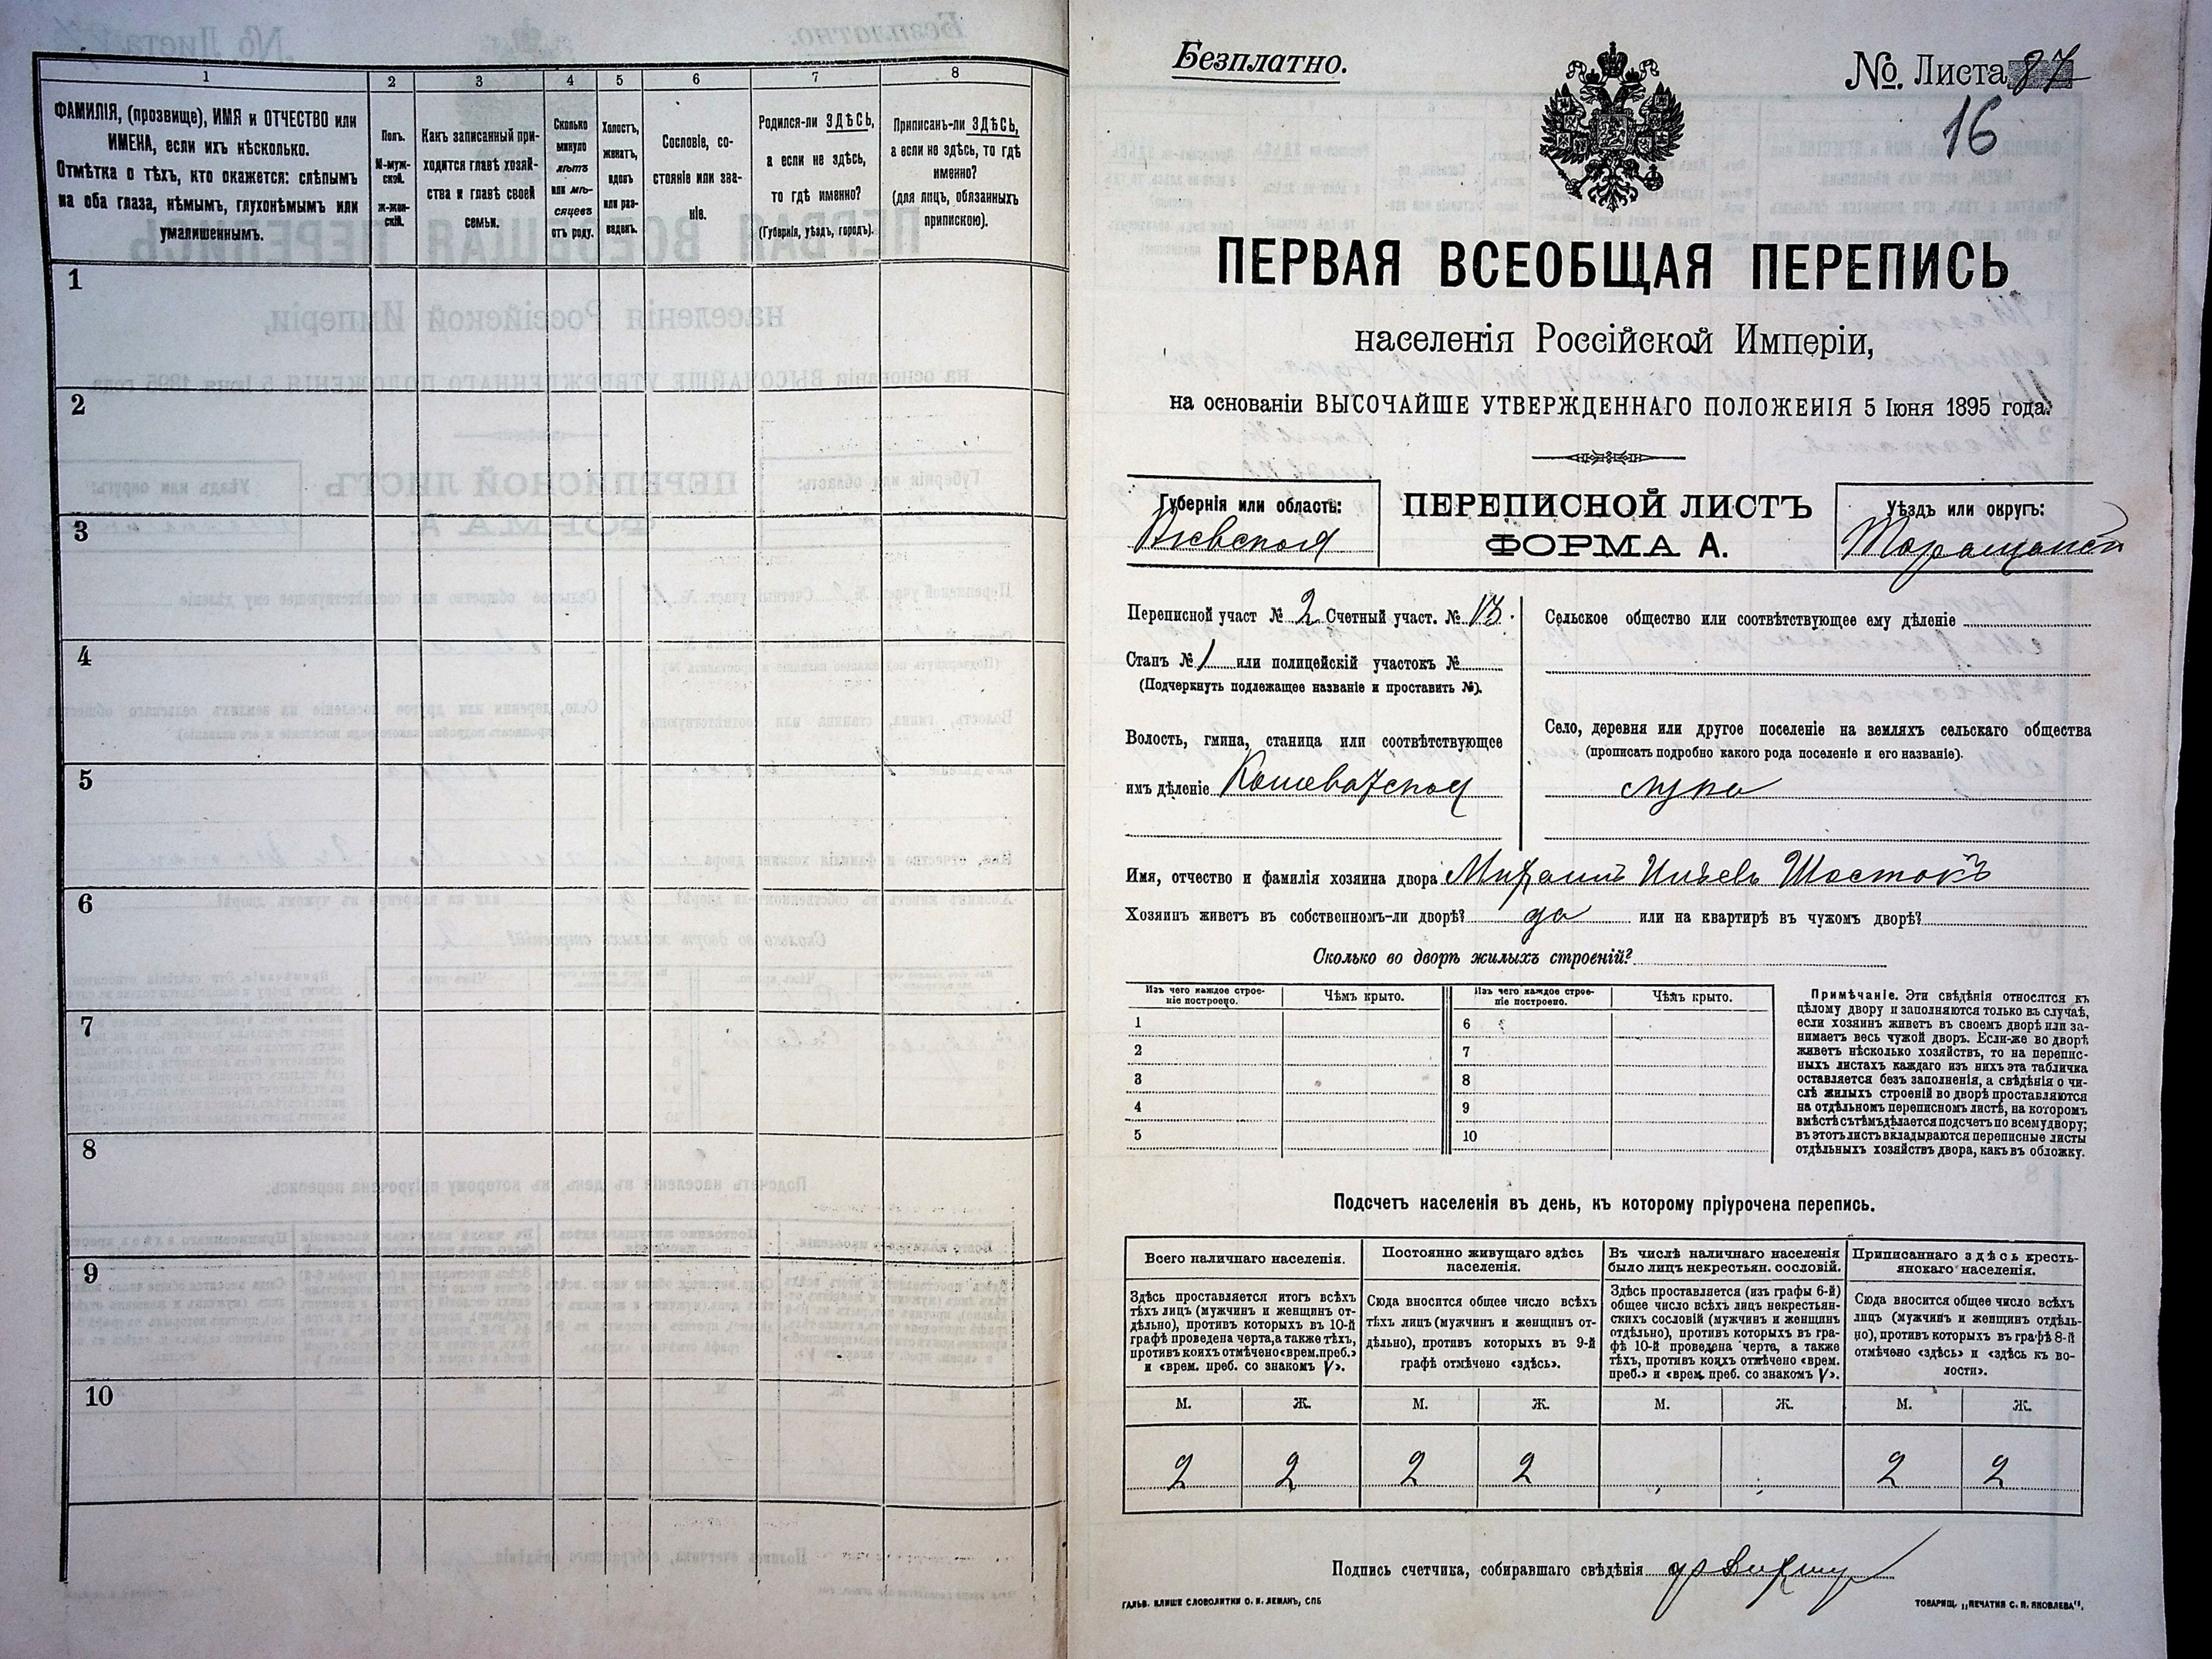 1 2 3 4 5 6 7 8
ФАМИЛІЯ, (прозвище), ИМЯ и ОТЧЕСТВО или
ИМЕНА, если ихъ нѣсколько.
Отмѣтка о тѣхъ, кто окажется: слѣпымъ
на оба глаза, нѣмымъ, глухонѣмымъ или
умалишеннымъ.
Полъ.
М-муж-
ской.
Ж-жен-
скій.
Какъ записанный при-
ходится главѣ хозяй-
ства и главѣ своей
семьи.
Сколько
минуло
лѣтъ
или мѣ-
сяцевъ
отъ роду.
Холостъ,
женатъ,
вдовъ
или раз-
веденъ.
Сословіе, со-
стояніе или зва-
ніе.
Родился-ли ЗДѢСЬ,
а если не здѣсь,
то гдѣ именно?
(Губернія, уѣздъ, городъ).
Приписанъ-ли ЗДѢСЬ,
а если не здѣсь, то гдѣ
именно?
(для лицъ, обязанныхъ
припискою).
1
2
3
4
5
6
7
8
9
10
Безплатно.
№ Листа 87
16
ПЕРВАЯ ВСЕОБЩАЯ ПЕРЕПИСЬ
населенія Россійской Имперіи,
на основаніи ВЫСОЧАЙШЕ УТВЕРЖДЕННАГО ПОЛОЖЕНІЯ 5 Іюня 1895 года.
Губернія или область:
Кіевская
ПЕРЕПИСНОЙ ЛИСТЪ
ФОРМА А.
Уѣздъ или округъ:
Таращанск
Переписной участ № 2 Счетный участ. № 13.
Станъ № 1 или полицейскій участокъ №
(Подчеркнуть подлежащее названіе и проставить №).
Волость, гмина, станица или соотвѣтствующее
имъ дѣленіе Кошеватская
Сельское общество или соотвѣтствующее ему дѣленіе
Село, деревня или другое поселеніе на земляхъ сельскаго общества
(прописать подробно какого рода поселеніе и его названіе).
Лука
Имя, отчество и фамилія хозяина двора Михаилъ Шостакъ
Хозяинъ живетъ въ собственномъ-ли дворѣ? да или на квартирѣ въ чужомъ дворѣ?
Сколько во дворѣ жилыхъ строеній?
Изъ чего каждое строе-
ніе построено.
Чѣмъ крыто.
Изъ чего каждое строе-
ніе построено.
Чѣмъ крыто.
1 6
2 7
3 8
4 9
5 10
Примѣчаніе. Эти свѣдѣнія относятся къ
цѣлому двору и заполняются только въ случаѣ,
если хозяинъ живетъ въ своемъ дворѣ или за-
нимаетъ весь чужой дворъ. Если-же во дворѣ
живетъ нѣсколько хозяйствъ, то на перепис-
ныхъ листахъ каждаго изъ нихъ эта табличка
оставляется безъ заполненія, а свѣдѣнія о чи-
слѣ жилыхъ строеній во дворѣ проставляются
на отдѣльномъ переписномъ листѣ, на которомъ
вмѣстѣ съ тѣмъ дѣлается подсчетъ по всему двору;
въ этотъ листъ вкладываются переписные листы
отдѣльныхъ хозяйствъ двора, какъ въ обложку.
Подсчетъ населенія въ день, къ которому пріурочена перепись.
Всего наличнаго населенія.
Здѣсь проставляется итогъ всѣхъ
тѣхъ лицъ (мужчин и женщин от-
дѣльно), против которыхъ въ 10-й
графѣ проведена черта, а также тѣхъ,
против коихъ отмѣчено «врем. преб.»
и «врем. преб. со знакомъ V».
Постоянно живущаго здѣсь
населенія.
Сюда вносится общее число всѣхъ
тѣхъ лиц (мужчин и женщин от-
дѣльно), против которыхъ въ 9-й
графѣ отмѣчено «здѣсь».
Въ числѣ наличнаго населенія
было лицъ некрестьян. сословій.
Здѣсь проставляется (изъ графы 6-й)
общее число всѣхъ лиц некрестьян-
скихъ сословій (мужчин и женщин
отдѣльно), против которыхъ въ гра-
фѣ 10-й проведена черта, а также
тѣхъ, против коихъ отмѣчено «врем.
преб.» и «врем. преб. со знакомъ V».
Приписаннаго здѣсь кресть-
янскаго населенія.
Сюда вносится общее число всѣхъ
лиц (мужчин и женщин отдѣль-
но), против которыхъ въ графѣ 8-й
отмѣчено «здѣсь» и «здѣсь къ во-
лости».
М. Ж. М. Ж. М. Ж. М. Ж.
2 2 2 2 2 2
Подпись счетчика, собиравшаго свѣдѣнія
ГАЛЬВ. КЛИШЕ СЛОВОЛИТНИ О. И. ЛЕМАНЪ, СПБ
ТОВАРИЩ. „ПЕЧАТНЯ С. П. ЯКОВЛЕВА".